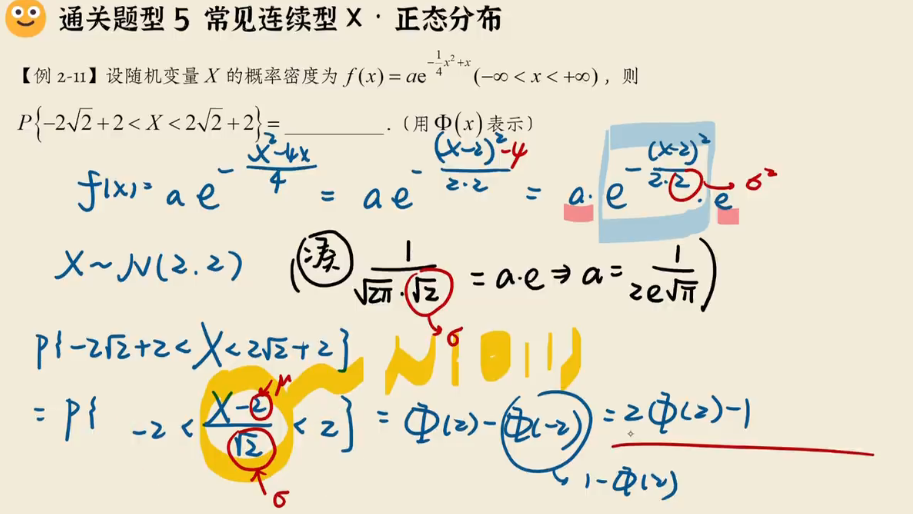 通关题型 5 常见连续型 X · 正态分布
【例 2-11】设随机变量 X 的概率密度为 f(x) = ae^{-\frac{1}{4}x²+x} (−∞ < x < +∞)，则
P{−2√2 + 2 < X < 2√2 + 2} = ________．（用 Φ(x) 表示）
f(x) = a e^{-\frac{x²-4x}{4}} = a e^{-\frac{(x-2)²-4}{2·2}} = a · e^{-\frac{(x-2)²}{2·2}} · e → σ²
X ~ N(2, 2) （凑 \frac{1}{√2π · √2} = a·e ⇒ a = \frac{1}{2e√π}）
σ
P{−2√2+2 < X < 2√2+2} ~ N(0, 1)
μ
= P{ −2 < \frac{X−2}{√2} < 2 } = Φ(2) − Φ(−2) = 2Φ(2) − 1
σ
1 − Φ(2)